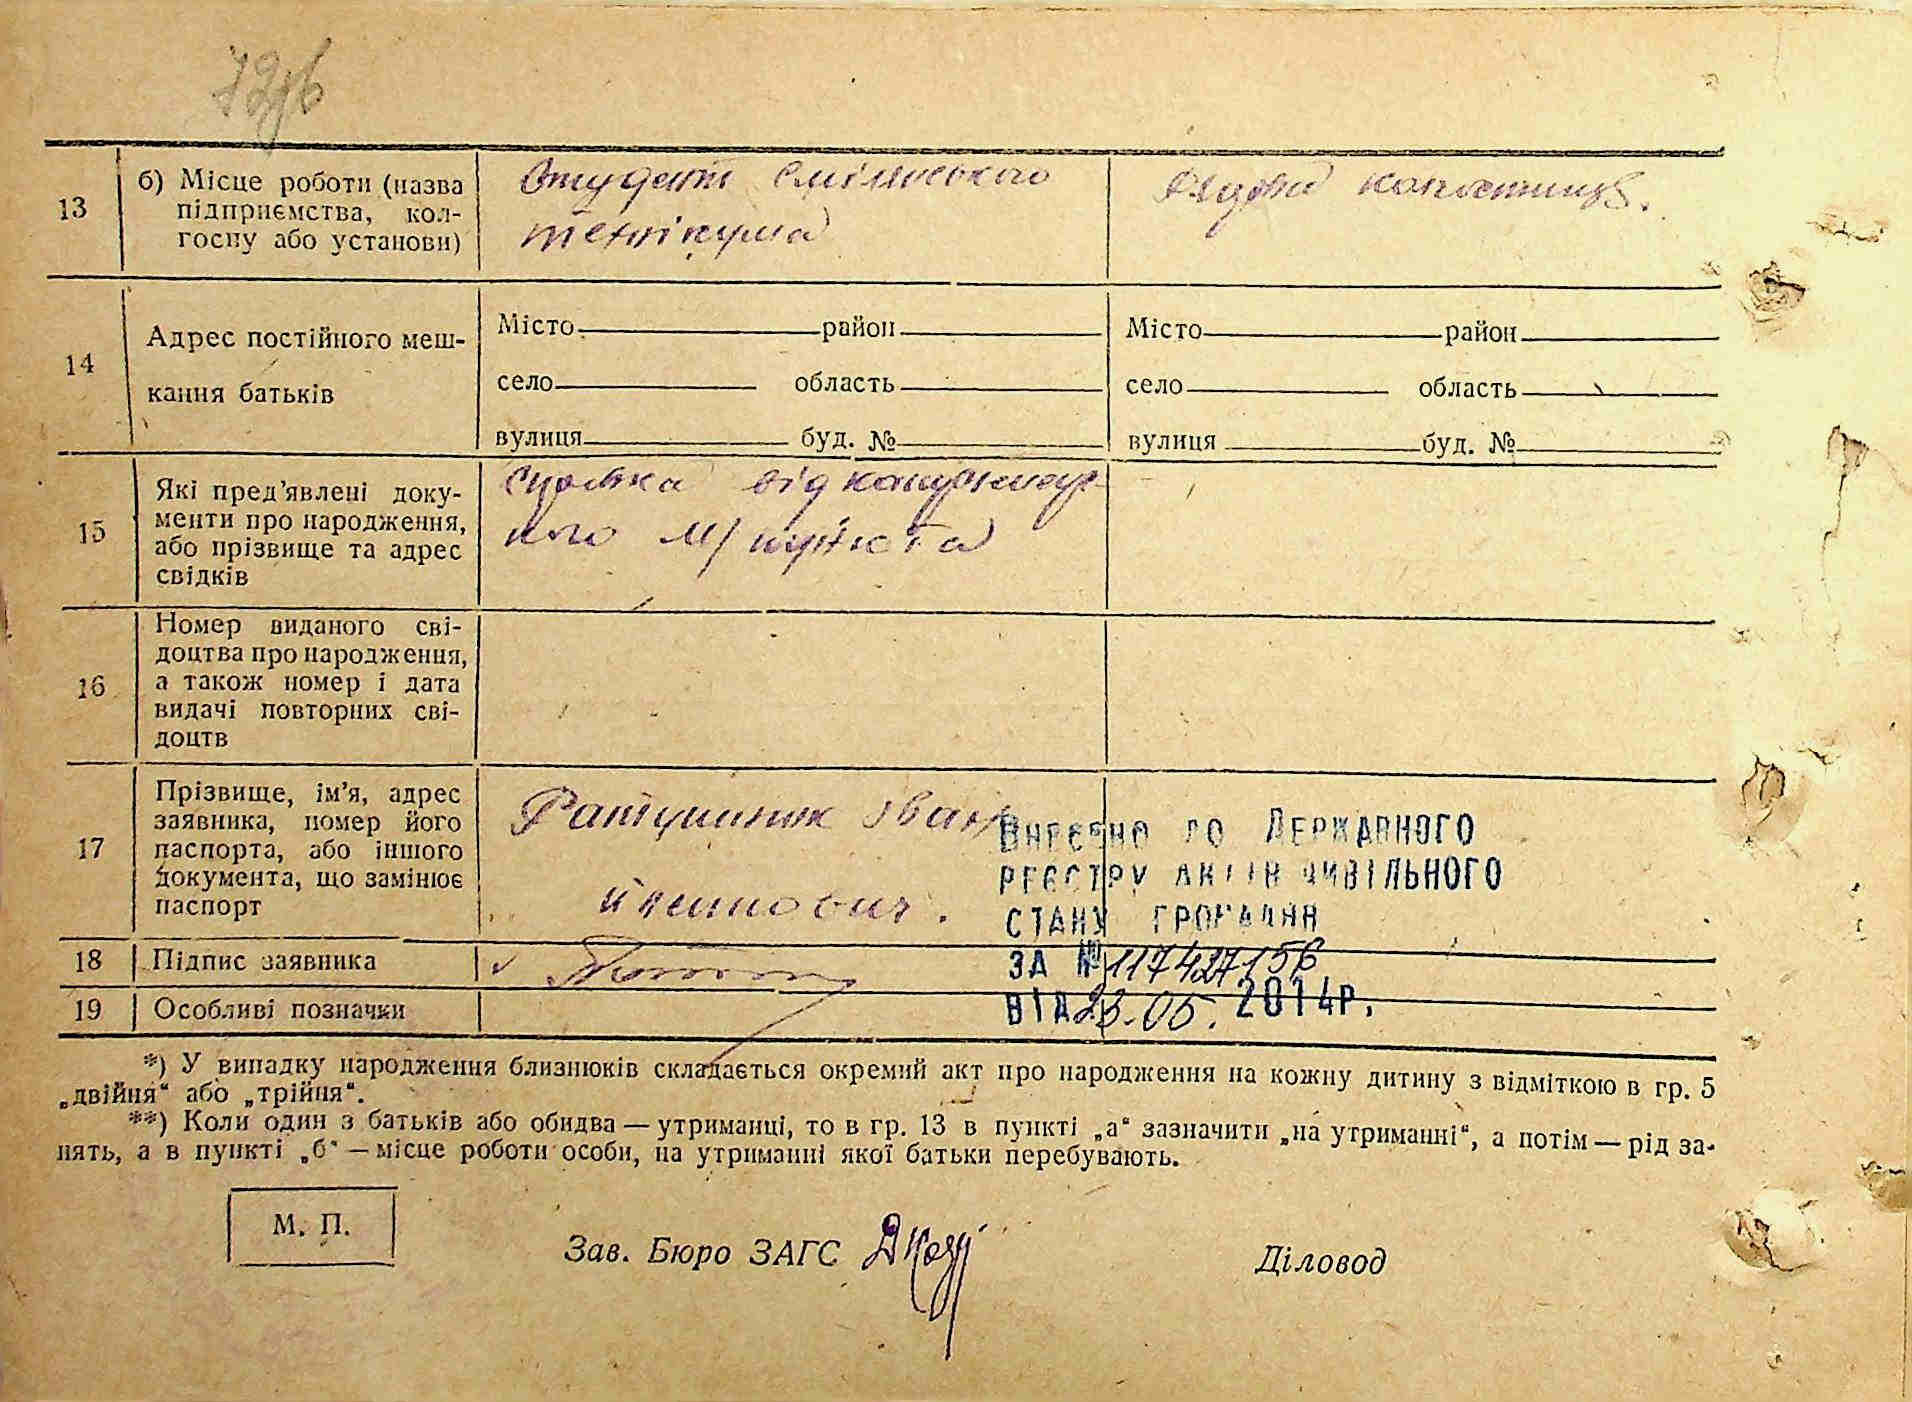 13
б) Місце роботи (назва
підприємства, кол-
госпу або установи)
Студент Смілянського
технікума
14
Адрес постійного меш-
кання батьків
Місто район
село область
вулиця буд. №
Місто район
село область
вулиця буд. №
15
Які пред'явлені доку-
менти про народження,
або прізвище та адрес
свідків
від
ного м/пункта
16
Номер виданого сві-
доцтва про народження,
а також номер і дата
видачі повторних сві-
доцтв
17
Прізвище, ім'я, адрес
заявника, номер його
паспорта, або іншого
документа, що замінює
паспорт
Ратушняк Іван
ВНЕСЕНО ДО ДЕРЖАВНОГО
РЕЄСТРУ АКТІВ ЦИВІЛЬНОГО
СТАНУ ГРОМАДЯН
ЗА № 117427156
ВІД 23.05. 2014Р.
18
Підпис заявника
19
Особливі позначки
*) У випадку народження близнюків складається окремий акт про народження на кожну дитину з відміткою в гр. 5
„двійня“ або „трійня“.
**) Коли один з батьків або обидва — утриманці, то в гр. 13 в пункті „а“ зазначити „на утриманні“, а потім — рід за-
нять, а в пункті „б“ — місце роботи особи, на утриманні якої батьки перебувають.
М. П.
Зав. Бюро ЗАГС
Діловод